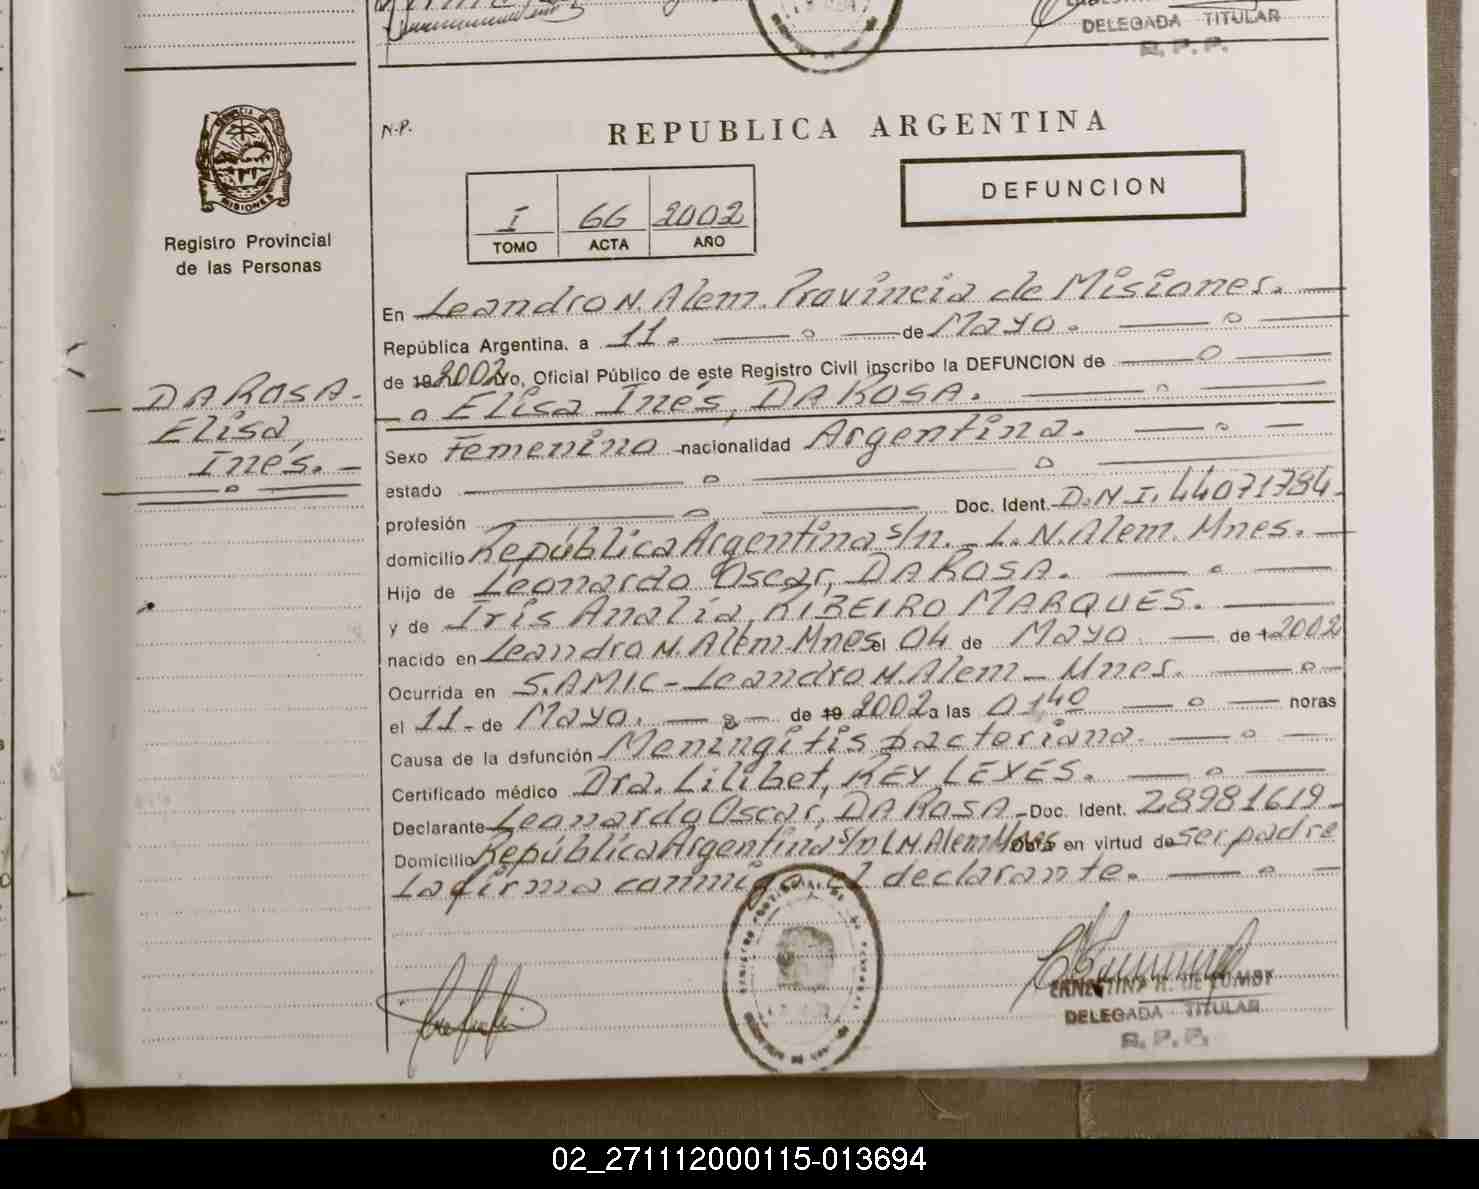 DELEGADA TITULAR
R. P. P.
MISIONES
Registro Provincial
de las Personas
DA ROSA.
Elisa,
Inés.
N.P.
REPUBLICA ARGENTINA
I 66 2002
TOMO ACTA AÑO
DEFUNCION
En Leandro N. Alem. Provincia de Misiones.
República Argentina, a 11. de Mayo.
de 19 2002 Yo, Oficial Público de este Registro Civil inscribo la DEFUNCION de
Elisa Inés, DA ROSA.
Sexo Femenino nacionalidad Argentina.
estado
profesión Doc. Ident. D.N.I. 44071784
domicilio República Argentina s/n. L. N. Alem. Mnes.
Hijo de Leonardo Oscar, DA ROSA.
y de Iris Analia, RIBEIRO MARQUES.
nacido en Leandro N. Alem-Mnes el 04 de Mayo de 1 2002
Ocurrida en S.AMIC-Leandro N. Alem - Mnes.
el 11 de Mayo. de 19 2002 a las 01,40 horas
Causa de la defunción Meningitis bacteriana.
Certificado médico Dra. Lilibet, REY LEYES.
Declarante Leonardo Oscar, DA ROSA Doc. Ident. 28981619
Domicilio República Argentina s/n L N. Alem Mnes Obra en virtud de ser padre
La firma conmigo el declarante.
DELEGADA TITULAR
R. P. P.
02_271112000115-013694